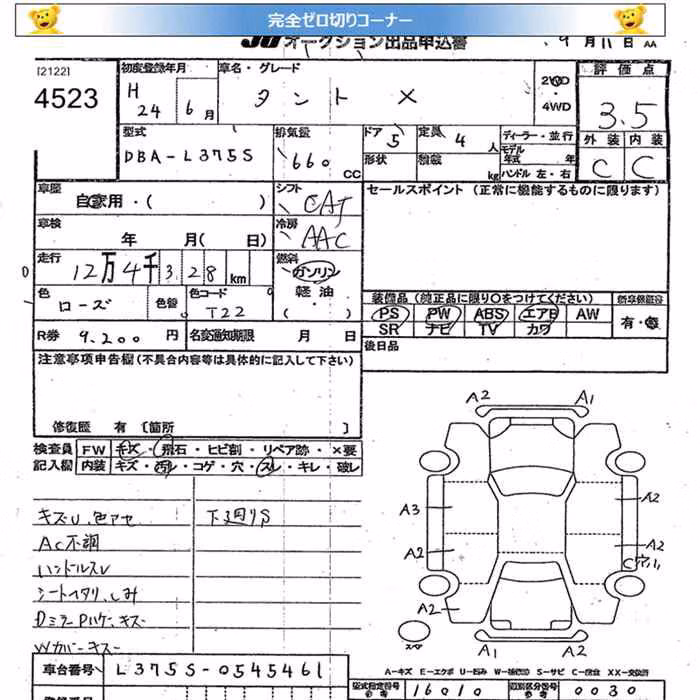 完全ゼロ切りコーナー
JU オークション出品申込書 '9月11日 AA
[2122]
4523
初度登録年月
H 24 6月
車名・グレード
タント X
2WD・4WD
評価点
3.5
外装 内装
C C
型式
DBA-L375S
排気量
660 CC
ドア 5
定員 4 人
形状
積載 kg
ディーラー・並行
モデル年式 年
ハンドル 左・右
車歴
自家用・( )
シフト
CAT
セールスポイント (正常に機能するものに限ります)
車検
年 月( 日)
冷房
AAC
走行
12万4千328km
燃料
ガソリン
軽油・
( )
色
ローズ
色替
色コード
T22
装備品 (純正品に限り○をつけてください)
PS PW ABS エアB AW
SR ナビ TV カワ
新車保証書
有・無
R券 9,200 円
名変通知期限 月 日
後日品
注意事項申告欄 (不具合内容等は具体的に記入して下さい)
修復歴 有 〔箇所 〕
検査員記入欄
FW キズ・飛石・ヒビ割・リペア跡・×要
内装 キズ・汚レ・コゲ・穴・スレ・キレ・破レ
キズU.色アセ
下廻りS
AC不調
ハンドルスレ
シートヘタリ、しみ
DミラーPハゲ、キズ
Wカバーキズ
A2 A1
A2
A3
A2
A2
C穴小
A2
A1 A2
スペア
車台番号 L375S-0545461
A-キズ E-エクボ U-凹み W-補修跡 S-サビ C-腐食 XX-交換済
型式指定番号 参考 16010
類別区分番号 参考 0030